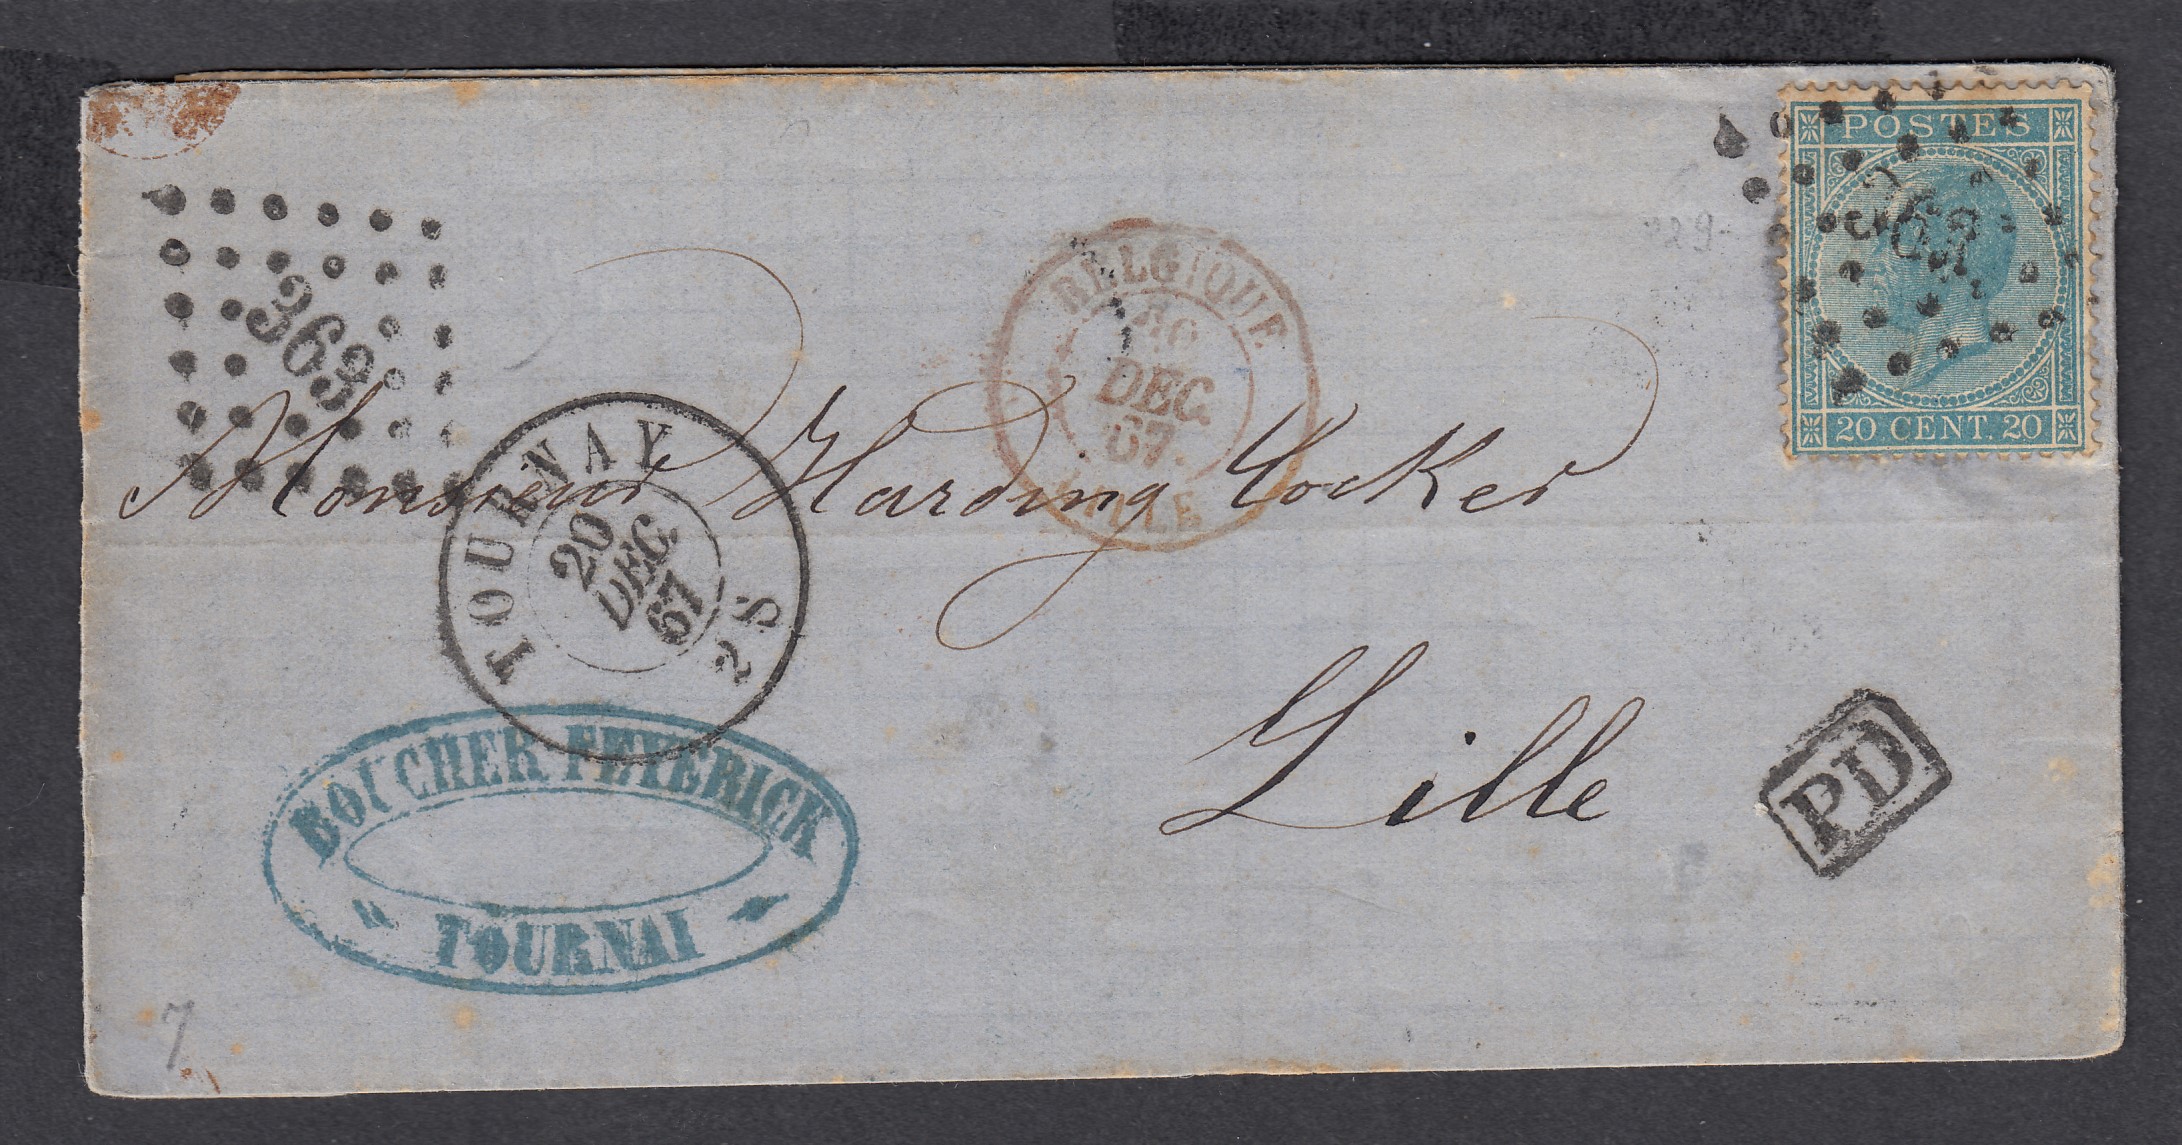 POSTES
20 CENT. 20
363
BELGIQUE
20
DEC.
67.
LILLE
TOURNAY
20
DEC.
67
2S
Monsieur Harding Cocker
Lille
PD
BOUCHER FEYERICK
TOURNAI
7